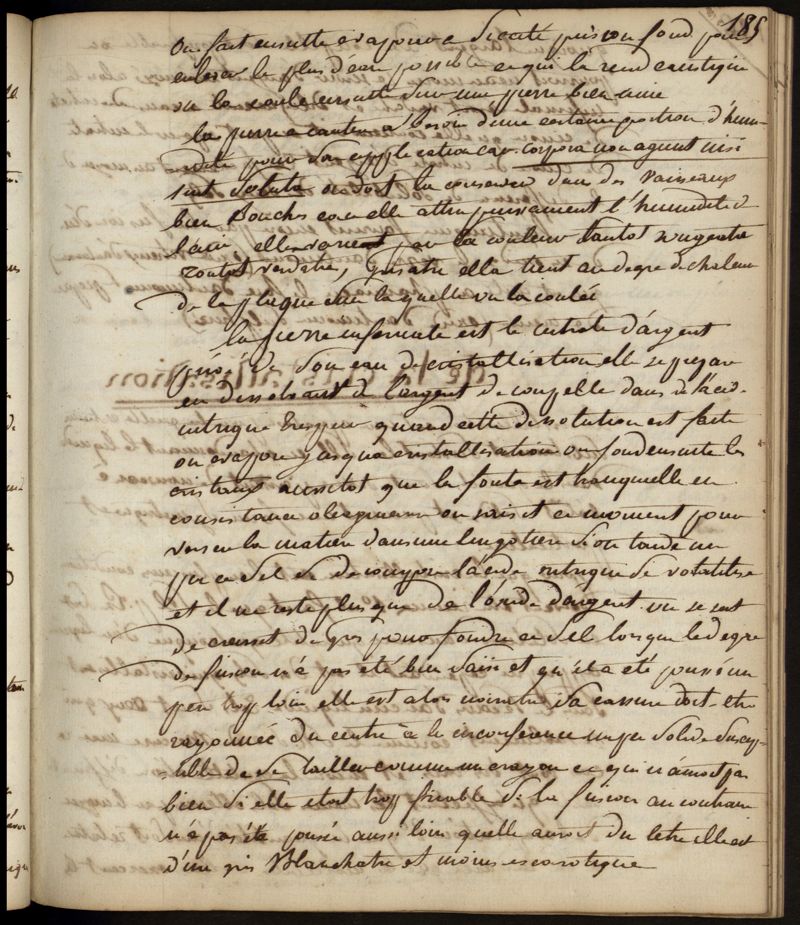 185
On fait ensuite evaporer a Siccité puis on fond pour
enlever le plus d'eau possible ce qui la rend caustique
on la coule ensuite Sur une pierre bien unie
la pierre a cautere a besoin d'une certaine portion d'humi-
dité pour Son application car corpora non agunt nisi
sint soluta on doit la conserver dans des vaisseaux
bien Bouchés car elle attire puissament l'humidité de
l'air elle varient par la couleur tantot rougeatre
tantot verdatre, grisatre ella tient au degre de chaleur
de la plaque sur la quelle on la coulée
la pierre infernale est le nitrate d'argent
privé de Son eau de cristallisation elle se prepare
en dissolvant de l'argent de coupelle dans de l'acide
nitrique quand cette dissolution est faite
on evapore jusqua cristallisation on fond ensuite les
cristaux aussitot que la fonte est tranquelle en
consistance oleagineuse on saisit ce moment pour
verser la matiere dans une lingotiere Si on tarde un
peu ce Sel Se decompose l'acide nitrique Se volatilise
et il ne reste plus que de l'oxide d'argent. on se sert
de creuset de gres pour fondre ce Sel lorsque le degre
de fusion n'a pas été bien Saisi et qu'il a été poussé un
peu trop loin elle est alors noiratre sa cassure doit etre
rayonnée du centre a la circonference un peu Solide Suscep-
tible de Se tailler comme un crayon ce qui n'auroit pas
bien Si elle etoit trop friable Si la fusion au contraire
n'a pas été poussée aussi loin quelle auroit du l'etre elle est
d'un gris Blanchatre et moins escarotique